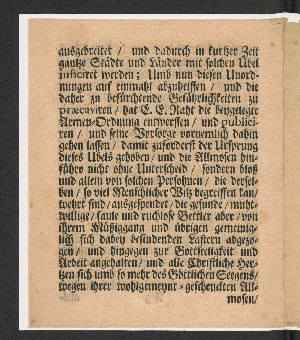 ausgebreitet / und dadurch in kurtzer Zeit
gantze Städte und Länder mit solchen Übel
inficiret werden; Umb nun diesen Unord-
nungen auf einmahl abzuhelffen / und die
daher zu befürchtende Gefährlichkeiten zu
præcaviren / hat E. E. Raht die beygelegte
Armen-Ordnung entworffen / und publici-
ren / und seine Vorsorge vornemlich dahin
gehen lassen / damit zuforderst der Ursprung
dieses Ubels gehoben / und die Allmosen hin-
führo nicht ohne Unterscheid / sondern bloß
und allein von solchen Persohnen / die dersel-
ben / so viel Menschlicher Witz begreiffen kan/
wehrt sind / ausgespendet / die gesunde / muht-
willige / faule und ruchlose Bettler aber / von
ihrem Müßiggang und übrigen gemeinig-
lich sich dabey befindenden Lastern abgezo-
gen / und hingegen zur Gottseeligkeit und
Arbeit angehalten / und alle Christliche Her-
tzen sich umb so mehr des Göttlichen Seegens/
wegen ihrer wohlgemeynt-geschenckten All-
mosen /